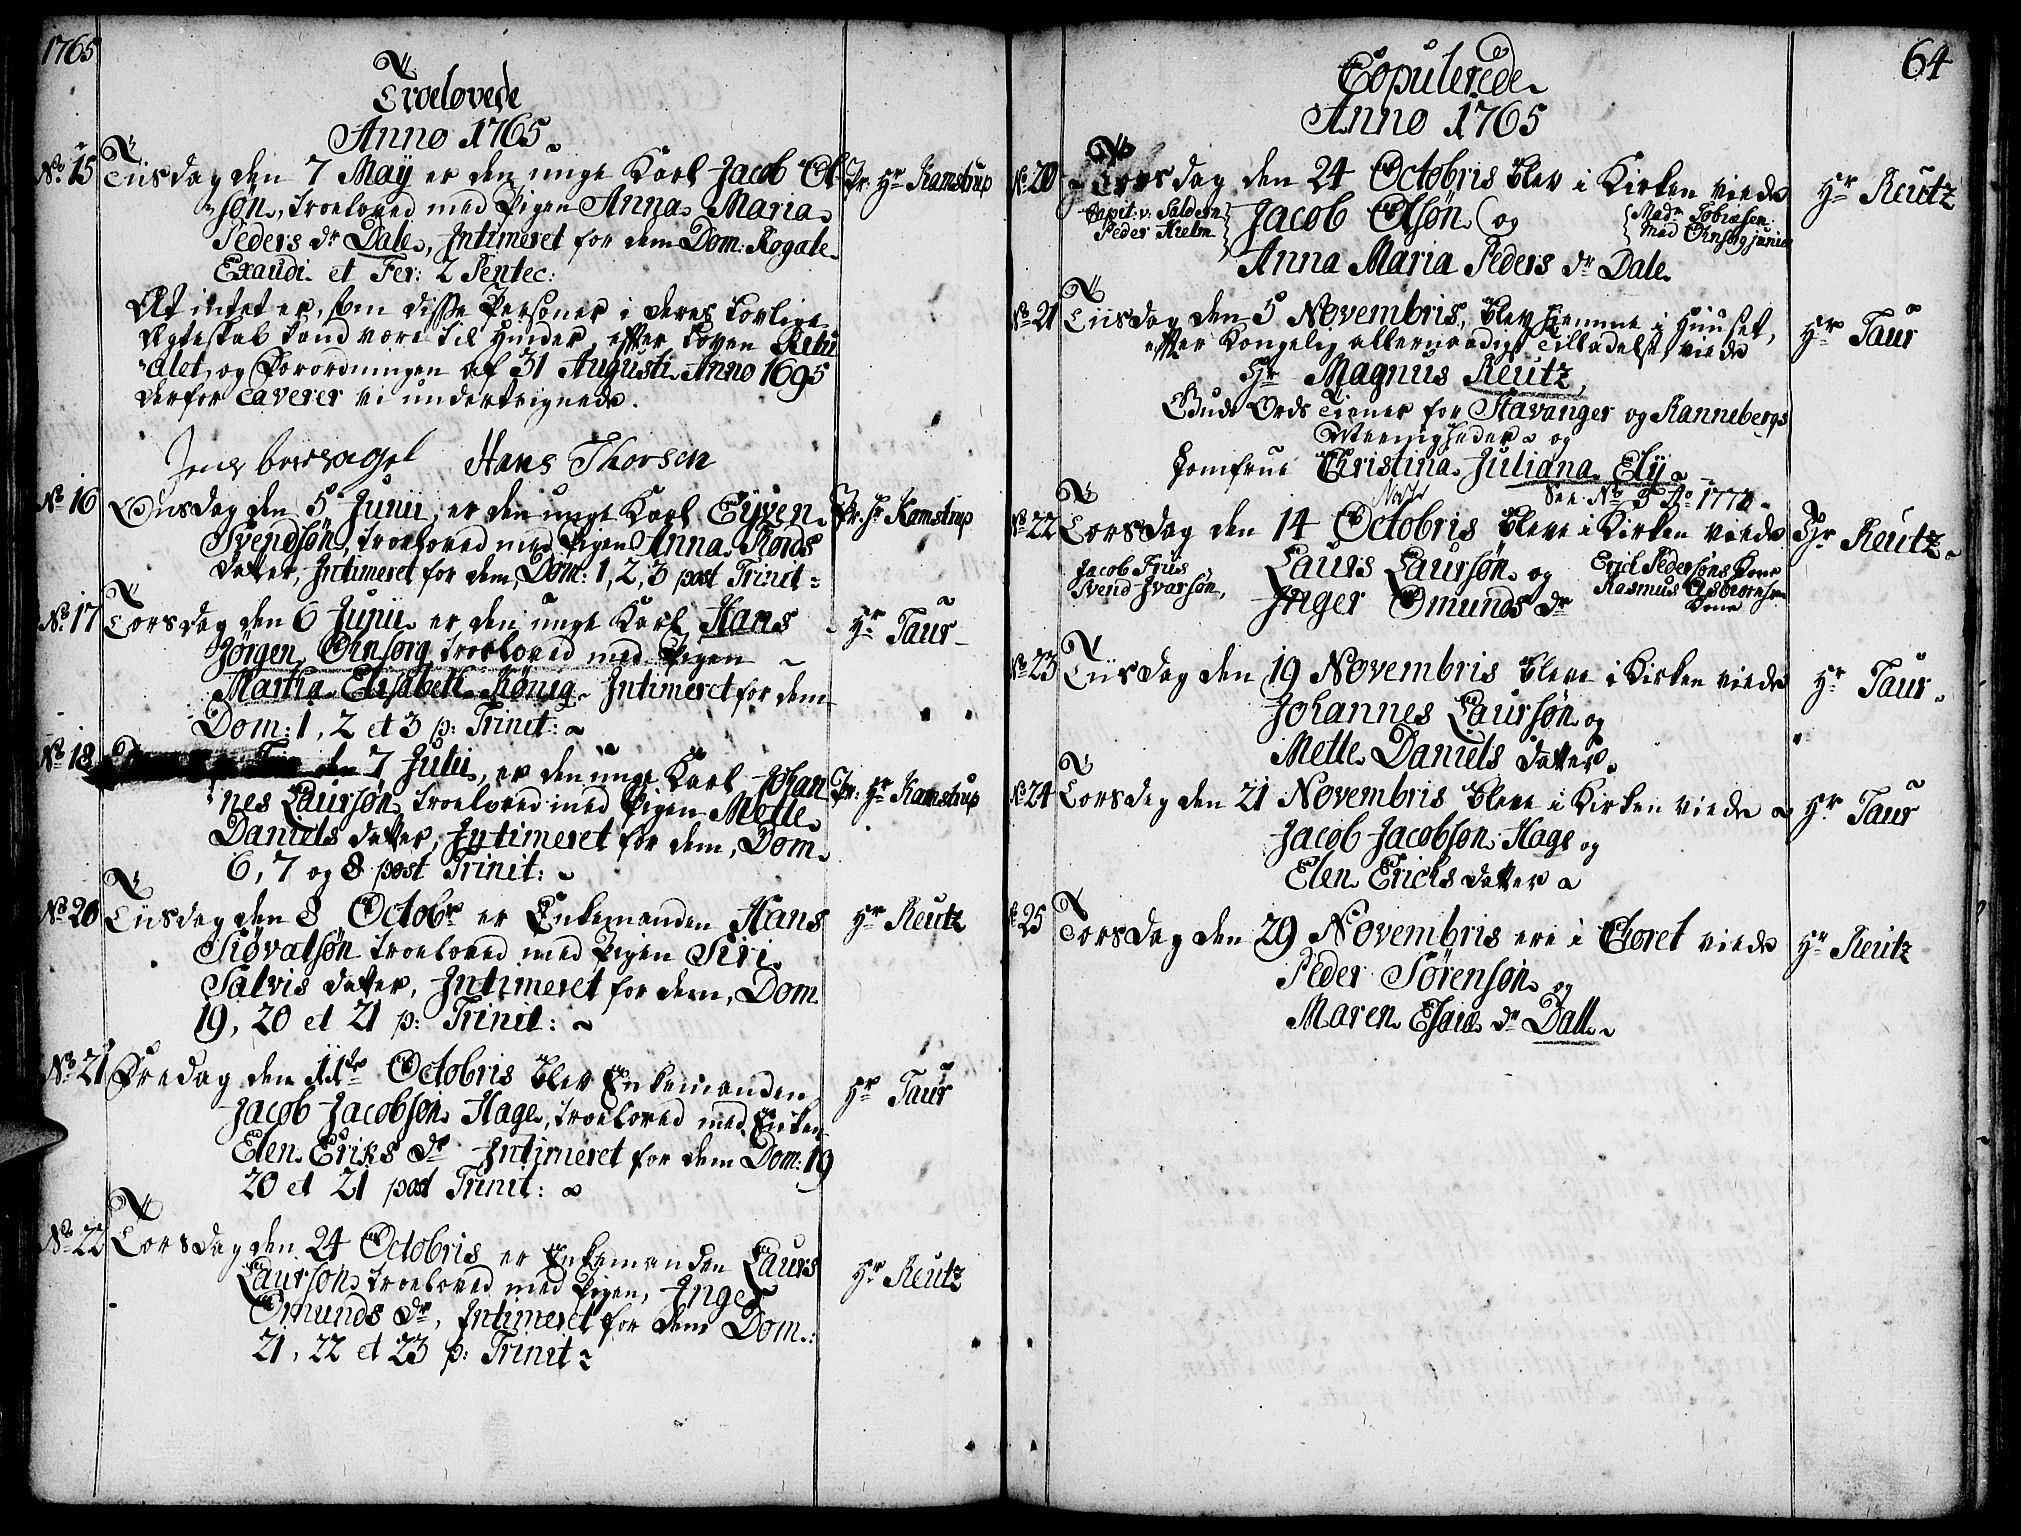 1765
Troelovede
Anno 1765
No. 15 Tiisdag den 7 May er den unge Karl Jacob Ol- Pr: Hr Kamstrup
søn, troeloved med Pigen Anna Maria
Peders dr Dale, Intimeret for dem Dom: Rogate
Exaudi et Fer: 2 Pentec:
At intet er, som disse Personer i deres lovlige
Egteskab kand være til Hinder, efter Loven Ritu
alet, og Forordningen af 31 Augusti Anno 1695
derfor caverer vi undertegnede.
Jens Hans Thorsen
No 16 Onsdag den 5 Junii, er den unge Karl Eyven Pr. Hr Kamstrup
Svendsøn, troeloved med Pigen Anna Kords
datter, Intimeret for dem, Dom: 1, 2, 3 post Trinit:
No. 17 Torsdag den 6 Junii er den unge Karl Hans Hr Taur
Jörgen Ohnsorg troeloved med Pigen
Martha Elisabeth König Intimeret for dem
Dom: 1, 2 et 3 p: Trinit:
No 18 den 7 Julii, er den unge Karl Johan Pr: Hr Kamstrup
nes Laursøn troeloved med Pigen Mette
Daniels datter, Intimeret for dem, Dom.
6, 7 og 8 post Trinit:
No 20 Tiisdag den 8 Octobr er Enkemanden Hans Hr Reutz
Siövatsøn troeloved med Pigen Siri
Salvis datter, Intimeret for dem, Dom
19, 20 et 21 p: Trinit:
No. 21 Fredag den 11te Octobris blev Enkemanden Hr Taur
Jacob Jacobsøn Hage, troeloved med Enken
Elen Eriks dr Intimeret for dem Dom: 19
20 et 21 post Trinit:
No 22 Torsdag den 24 Octobris er Enkemanden Laurs Hr Reutz
Laursøn troeloved med Pigen, Inger
Omunds dr, Intimeret for dem Dom.:
21, 22 et 23 p: Trinit
64
Copulerede
Anno 1765
No 20 Torsdag den 24 Octobris blev i Kirken viede Hr Reutz
Capit: v: Saldern Jacob Olsøn og Madm Tobiæsen
Peder Hielm Mad Ohnsorg junior
Anna Maria Peders dr Dale
No 21 Tiisdag den 5 Novembris, blev hiemme i Huuset, Hr Taur
efter Kongelig allernaadigst Tilladelse, viede
Hr Magnus Reutz,
Guds Ords Tiener for Stavanger og Rannebergs
Meenigheder og
Jomfrue Christina Juliana Ely
See No 5 Ao 1772
Novbr
No 22 Torsdag den 14 Octobris bleve i Kirken viede Hr Reutz
Jacob Friis Laurs Laursøn og Erich Pedersøns Kone
Svend Ivarsøn, Inger Omunds dr Rasmus Asbiørnsens
Kone
No 23 Tiisdag den 19 Novembris bleve i Kirken viede Hr Taur
Johannes Laursøn og
Mette Daniels datter
No 24 Torsdag den 21 Novembris bleve i Kirken viede Hr Taur
Jacob Jacobsøn Hage og
Elen Ericks datter
No 25 Torsdag den 29 Novembris ere i Choret viede Hr Reutz
Peder Sørensøn og
Maren Esaiæ dr Dall